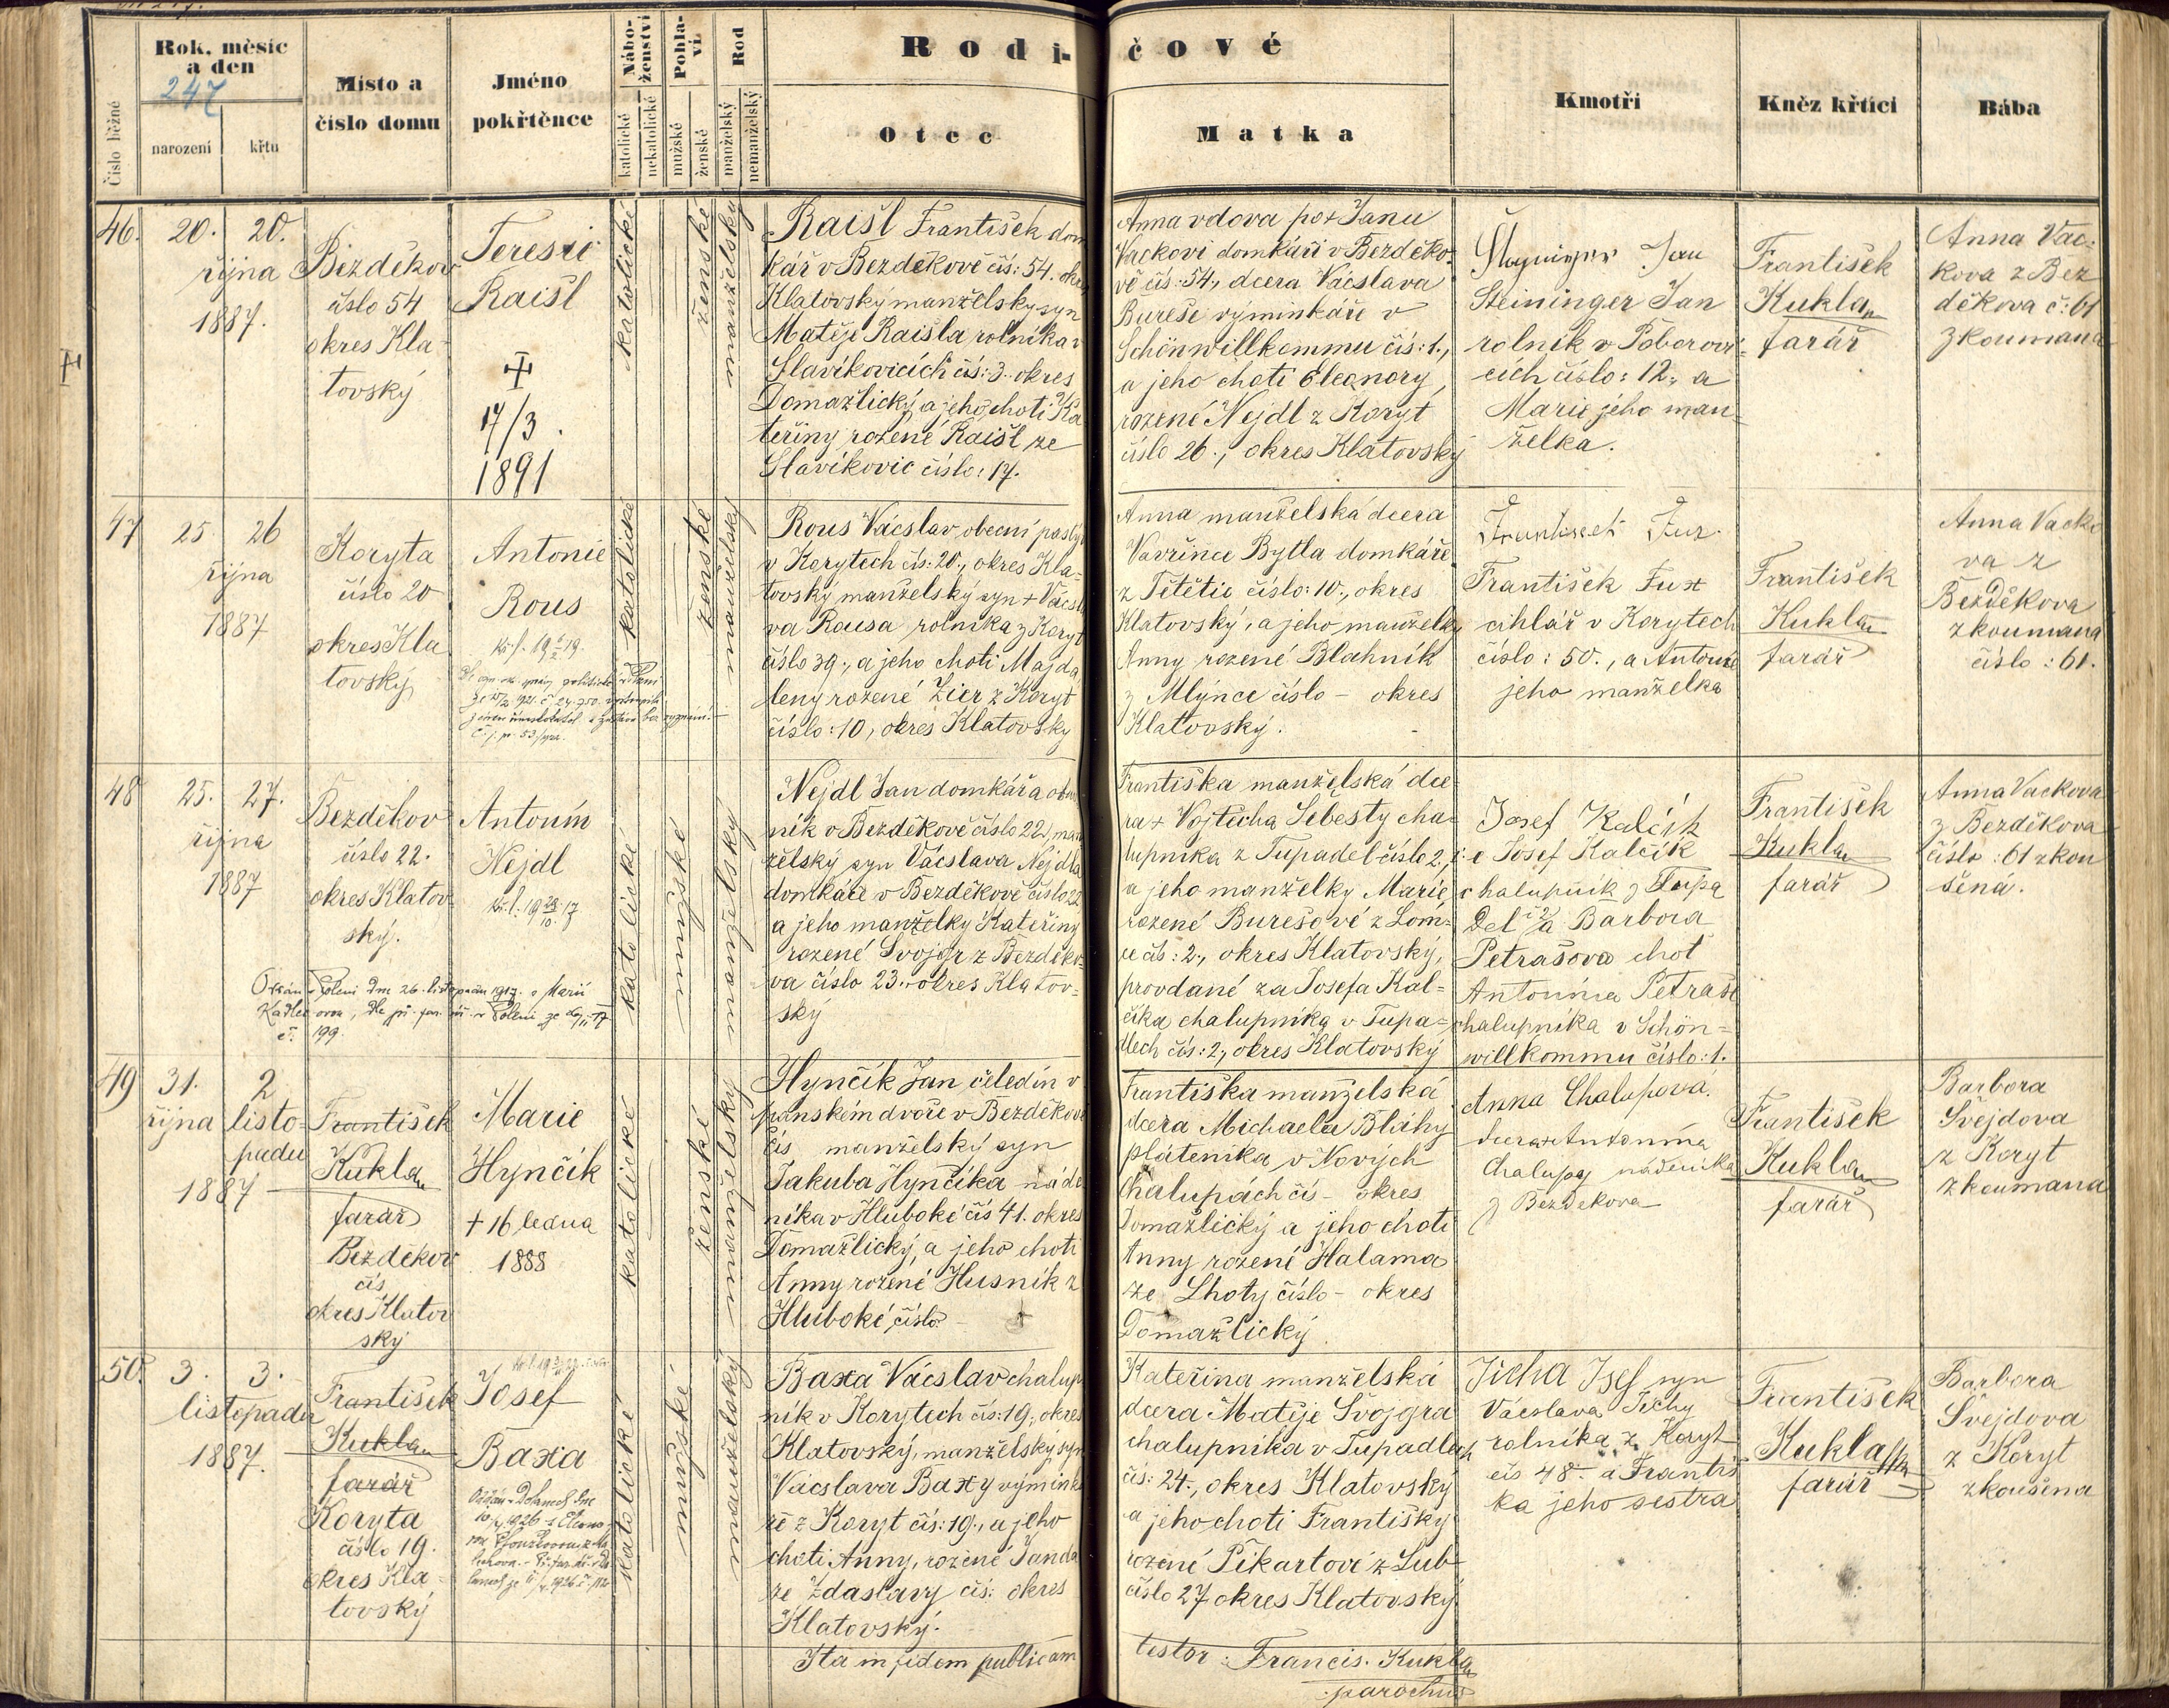 Číslo běžné
Rok, měsíc
a den
247
narození
křtu
Místo a
číslo domu
Jméno
pokřtěnce
Nábo-
ženství
katolické
nekatolické
Pohla-
ví
mužské
ženské
Rod
manželský
nemanželský
Rodi-
čové
Otec
Matka
Kmotři
Kněz křtící
Bába
46.
20. 20.
října
1887.
Bezděkov
číslo 54
okres Kla-
tovský
Teresie
Raišl
17/3.
1891
katolické
ženské
manželský
Raišl František dom
kář v Bezděkově čís: 54. okres
Klatovský manželský syn
Matěje Raišla rolníka v
Slavíkovicích čís: 3. okres
Domažlický, a jeho choti Ka
teřiny rozené Raišl ze
Slavíkovic číslo: 17.
Anna vdova po + Janu
Vackovi domkáři v Bezděko-
vě čís: 54., dcera Vácslava
Bureše výminkáře v
Schönwillkommu čís: 1.,
a jeho choti Eleonory,
rozené Nejdl z Koryt
číslo 26., okres Klatovský
Steininger Jan
rolník v Poborovi-
cích číslo: 12., a
Marie jeho man-
želka.
František
Kukla
farář
Anna Vac-
kova z Bez
děkova č: 61
zkoumana
47
25. 26
října
1887
Koryta
číslo 20
okres Kla
tovský
Antonie
Rous
katolické
ženské
manželský
Rous Vácslav, obecní pastýř
v Korytech čís: 20., okres Kla-
tovský manželský syn + Vácsla
va Rousa rolníka z Koryt
číslo 39., a jeho choti Magda
leny rozené Zier z Koryt
číslo: 10, okres Klatovský
Anna manželská dcera
Vavřince Bytla domkáře
z Tětětic číslo: 10., okres
Klatovský, a jeho manželky
Anny rozené Blahník
z Mlýnce číslo - okres
Klatovský.
František Fux
František Fux
cihlář v Korytech
číslo: 50., a Antonie
jeho manželka
František
Kukla
farář
Anna Vacko
va z
Bezděkova
zkoumana
číslo: 61.
48
25. 27.
října
1887
Bezděkov
číslo 22.
okres Klatov
ský.
Antonín
Nejdl
Oddán v Poleni dne 26. listopadu 1917. s Marií
199
katolické
mužské
manželský
Nejdl Jan domkář a obuv
ník v Bezděkově číslo 22., man
želský syn Vácslava Nejdla
domkáře v Bezděkově číslo 22
a jeho manželky Kateřiny
rozené Svojgr z Bezděko-
va číslo 23. okres Klatov-
ský
Františka manželská dce-
ra + Vojtěcha Šebesty cha-
lupníka z Tupadel číslo 2.,
a jeho manželky Marie,
rozené Burešové z Lom-
ce čís: 2., okres Klatovský,
provdané za Josefa Kal-
číka chalupníka v Tupa-
dlech čís: 2., okres Klatovský
Josef Kalčík
Josef Kalčik
chalupník z Tupa
del č 2 a Barbora
Petrašova choť
Antonína Petraše
chalupníka v Schön-
willkommu číslo: 1.
František
Kukla
farář
Anna Vackova
z Bezděkova
číslo: 61 zkou
šená.
49
31. 2
října listo-
padu
1887
František
Kukla
farář
Bezděkov
čís
okres Klatov
ský
Marie
Hynčík
+ 16 ledna
1888
katolické
ženské
manželský
Hynčík Jan, čeledín v
panském dvoře v Bezděkově
čís manželský syn
Jakuba Hynčíka náde
níka v Hluboké čís 41. okres
Domažlický, a jeho choti
Anny rozené Husník z
Hluboké, číslo -
Františka manželská
dcera Michaela Bláhy
plátenika v Nových
Chalupách čís - okres
Domažlický a jeho choti
Anny rozené Halama
ze Lhoty číslo - okres
Domažlický.
Anna Chalupová.
dcera + Antonína
Chalupy nádeníka
z Bezděkova
František
Kukla
farář
Barbora
Švejdova
z Koryt
zkoumana
50.
3. 3.
listopadu
1887.
František
Kukla
farář
Koryta
číslo 19.
okres Kla-
tovský
Josef
Baxa
katolické
mužské
manželský
Baxa Vácslav chalup
ník v Korytech čís: 19., okres
Klatovský, manželský syn
Vácslava Baxy výminká
ře z Koryt čís: 19., a jeho
choti Anny, rozené Janda
ze Zdaslavy čís: okres
Klatovský.
Kateřina manželská
dcera Matěje Svojgra
chalupníka v Tupadlech
čís: 24., okres Klatovský
a jeho choti Františky
rozené Pikartové z Lub
číslo 27 okres Klatovský
Jícha Josef syn
Vácslava Jíchy
rolníka z Koryt
čís 48. a Františ
ka jeho sestra
František
Kukla
farář
Barbora
Švejdova
z Koryt
zkoušena
Ita in fidem publicam
testor: Francis. Kukla
parochus